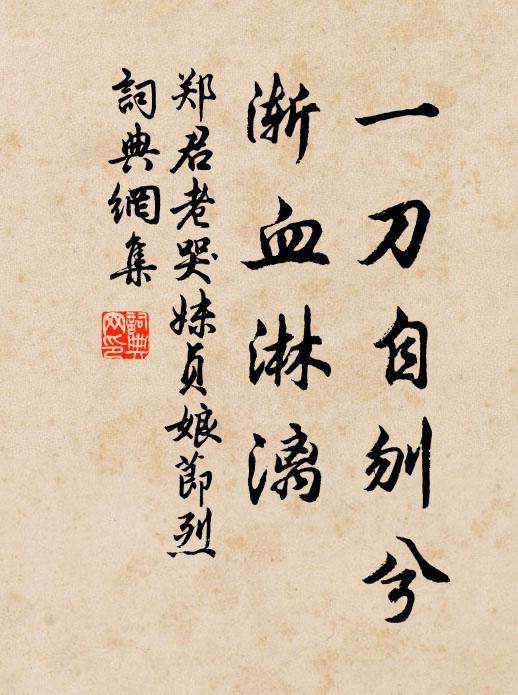 一刀自刎兮
渐血淋漓
郑君老哭妹贞娘節烈
詞典網集
詞典网印